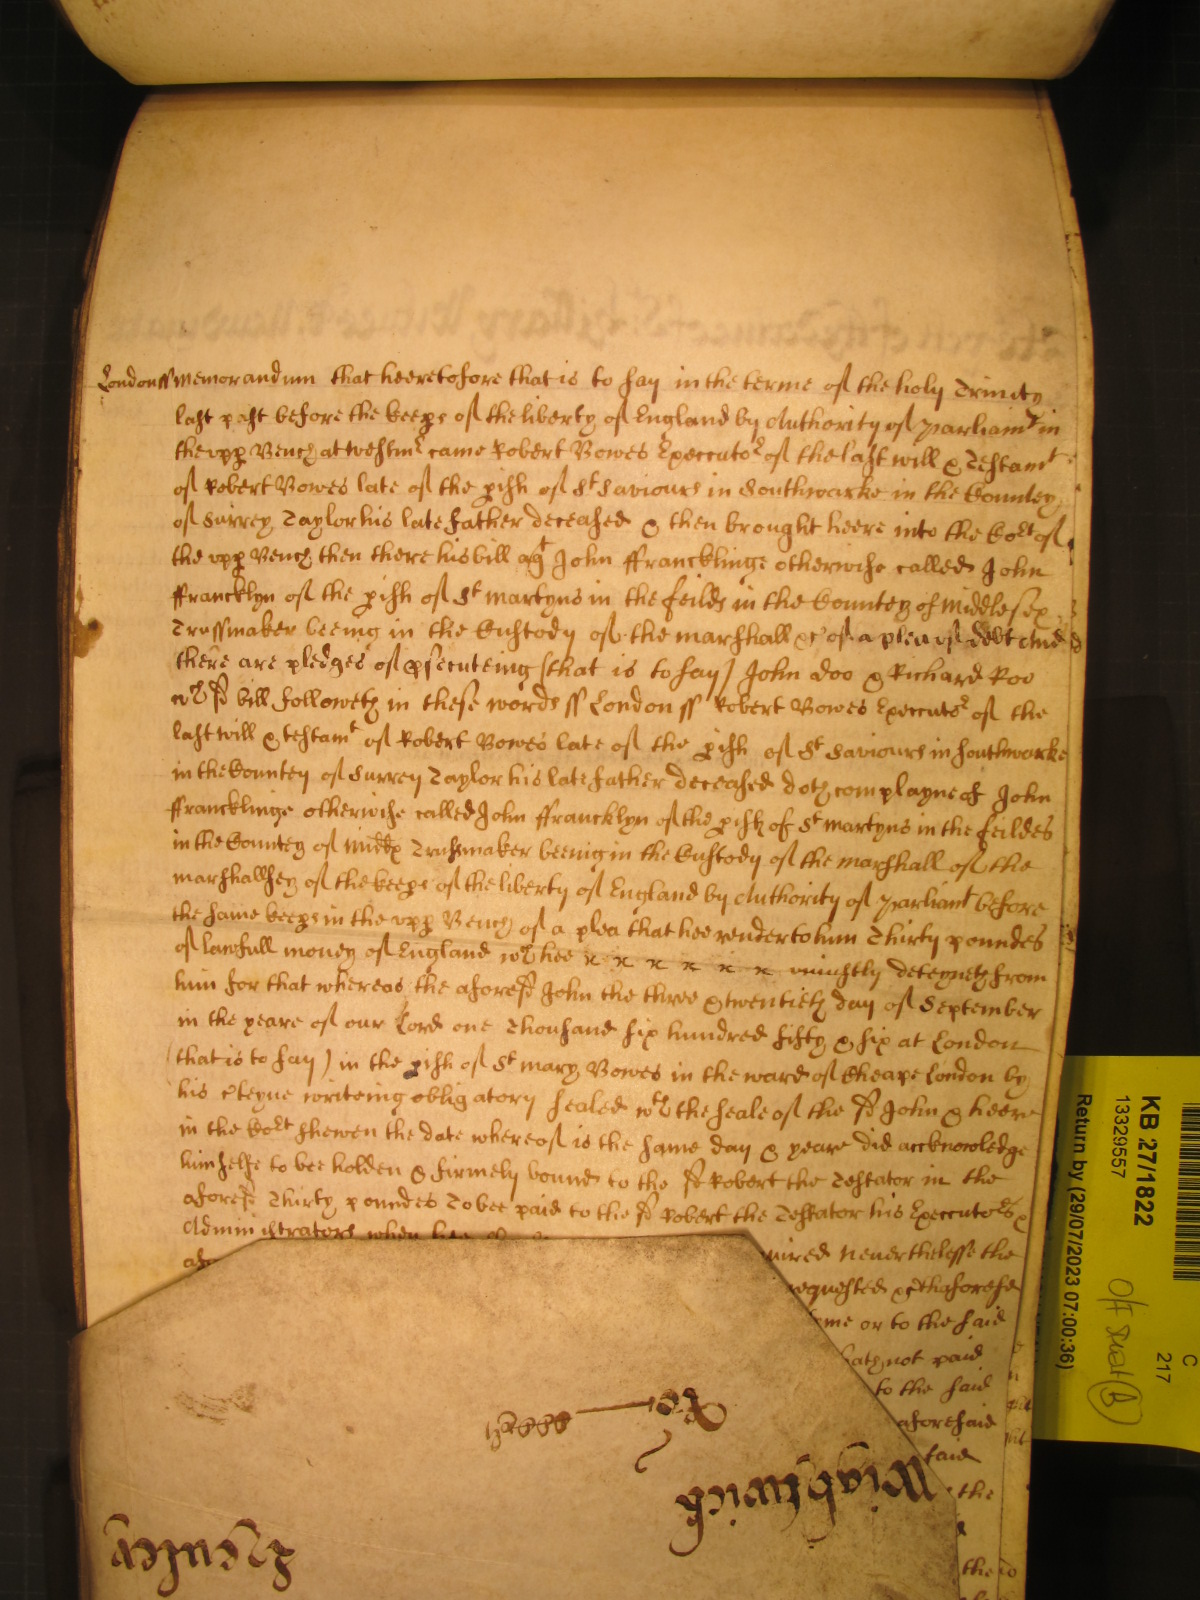 London ss Memorandum that heeretofore that is to say in the terme of the holy Trinity
last past before the keeps of the liberty of England by Authority of Parliamt in
the upp Bench at Westmr came Robert Bowes Executor of the last will & Testamt
of Robert Bowes late of the pish of St Saviours in Southwarke in the Countey
of Surrey Taylor his late father deceased & then brought heere into the Cort of
the upp Bench then there his bill agt John ffrancklinge otherwise called John
ffrancklyn of the pish of St Martyns in the feilds in the Countey of Middlesex
Trussmaker beeing in the Custody of the Marshall &c of a plea of debt And
there are pledges of psecuteing (that is to say) John Doo & Richard Roo
wch sd bill followeth in these words ss London ss Robert Bowes Executor of the
last will & testamt of Robert Bowes late of the pish of St Saviours in Southwarke
in the Countey of Surrey Taylor his late father deceased doth complayne of John
ffrancklinge otherwise called John ffrancklyn of the pish of St Martyns in the feildes
in the Countey of Middx Trussmaker beeing in the Custody of the Marshall of the
Marshallsey of the keeps of the liberty of England by Authority of Parliamt before
the same keeps in the upp Bench of a plea that hee render to him Thirty poundes
of lawfull money of England wch hee x x x x x x uniustly deteyneth from
him for that whereas the aforesd John the three & twentieth day of September
in the yeare of our Lord one Thousand six hundred fifty & six at London
(that is to say) in the pish of St Mary Bowes in the ward of Cheape London by
his cteyne writeing obligatory sealed wth the seale of the sd John & heere
in the Cort shewen the date whereof is the same day & yeare did accknowledge
himselfe to bee holden & firmely bound to the sd Robert the Testator in the
aforesd Thirty poundes To bee paid to the sd Robert the Testator his Executors
Administrators when
uired Neverthelesse the
requested &c thaforesd
me or to the said
hath not paid
to the said
aforesaid
said
the
the
Wightwick
KB 27/1822
13329557
Return by (29/07/2023 07:00:36)
C
217